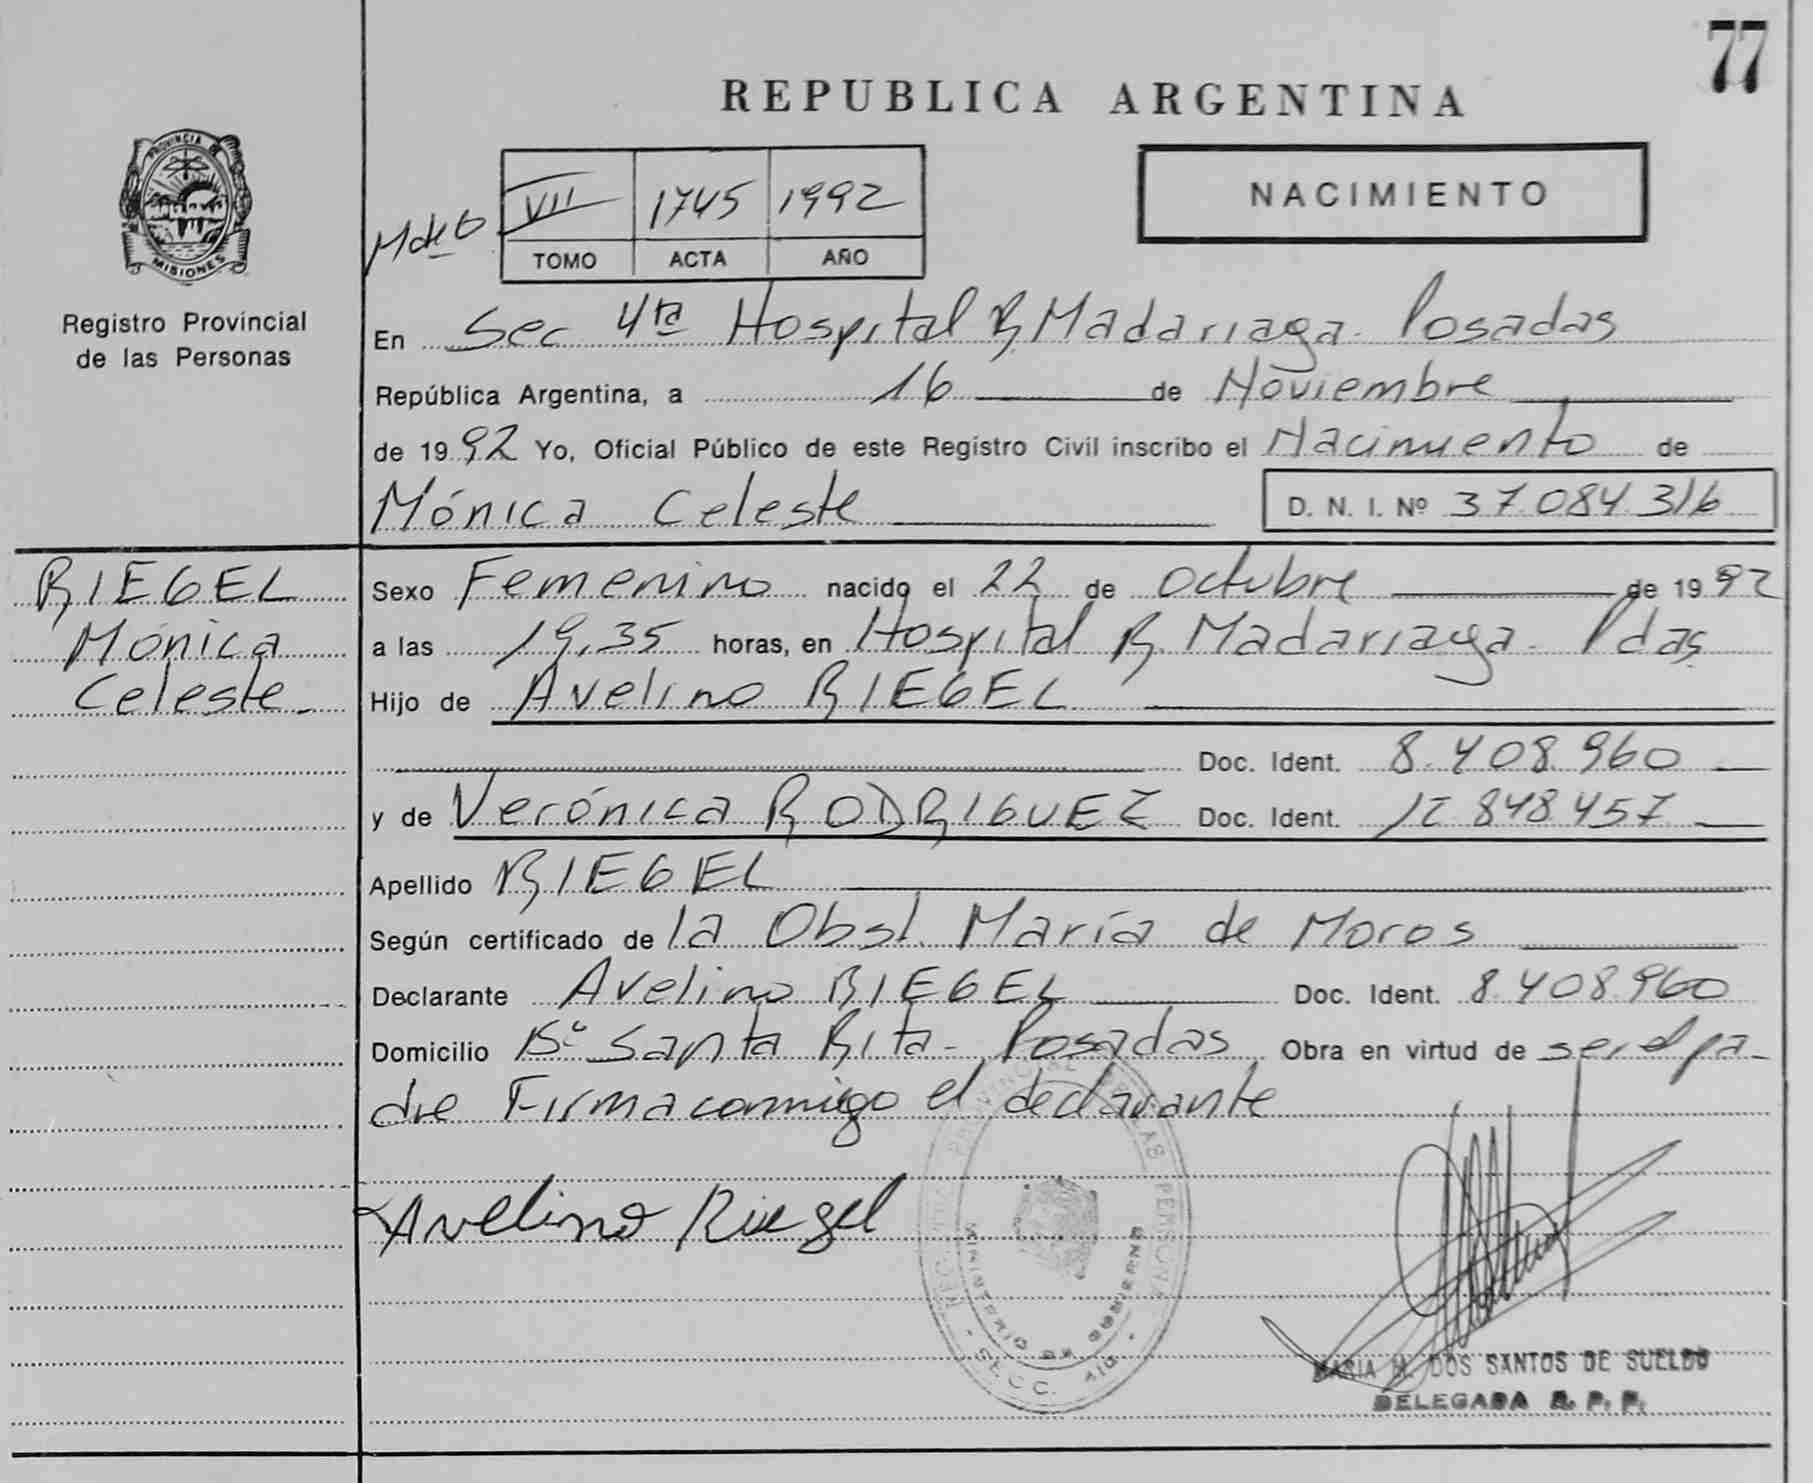 77
REPUBLICA ARGENTINA
PROVINCIA DE
MISIONES
Registro Provincial
de las Personas
VII 1745 1992
TOMO ACTA AÑO
NACIMIENTO
En Sec 4ta Hospital R. Madariaga. Posadas
República Argentina, a 16 de Noviembre
de 1992 Yo, Oficial Público de este Registro Civil inscribo el Nacimiento de
Mónica Celeste D. N. I. Nº 37.084.316
RIEGEL
Mónica
Celeste
Sexo Femenino nacido el 22 de Octubre de 1992
a las 19,35 horas, en Hospital R. Madariaga - Pdas.
Hijo de Avelino RIEGEL
Doc. Ident. 8.408.960
y de Verónica RODRIGUEZ Doc. Ident. 12.848.457
Apellido RIEGEL
Según certificado de la Obst. María de Moros
Declarante Avelino RIEGEL Doc. Ident. 8.408.960
Domicilio Bº Santa Rita - Posadas Obra en virtud de ser el pa-
dre Firma conmigo el declarante
Avelino Riegel
MINISTERIO DE GOBIERNO
SECC. 4ta
MARIA M. DOS SANTOS DE SUELDO
DELEGADA R. P. P.